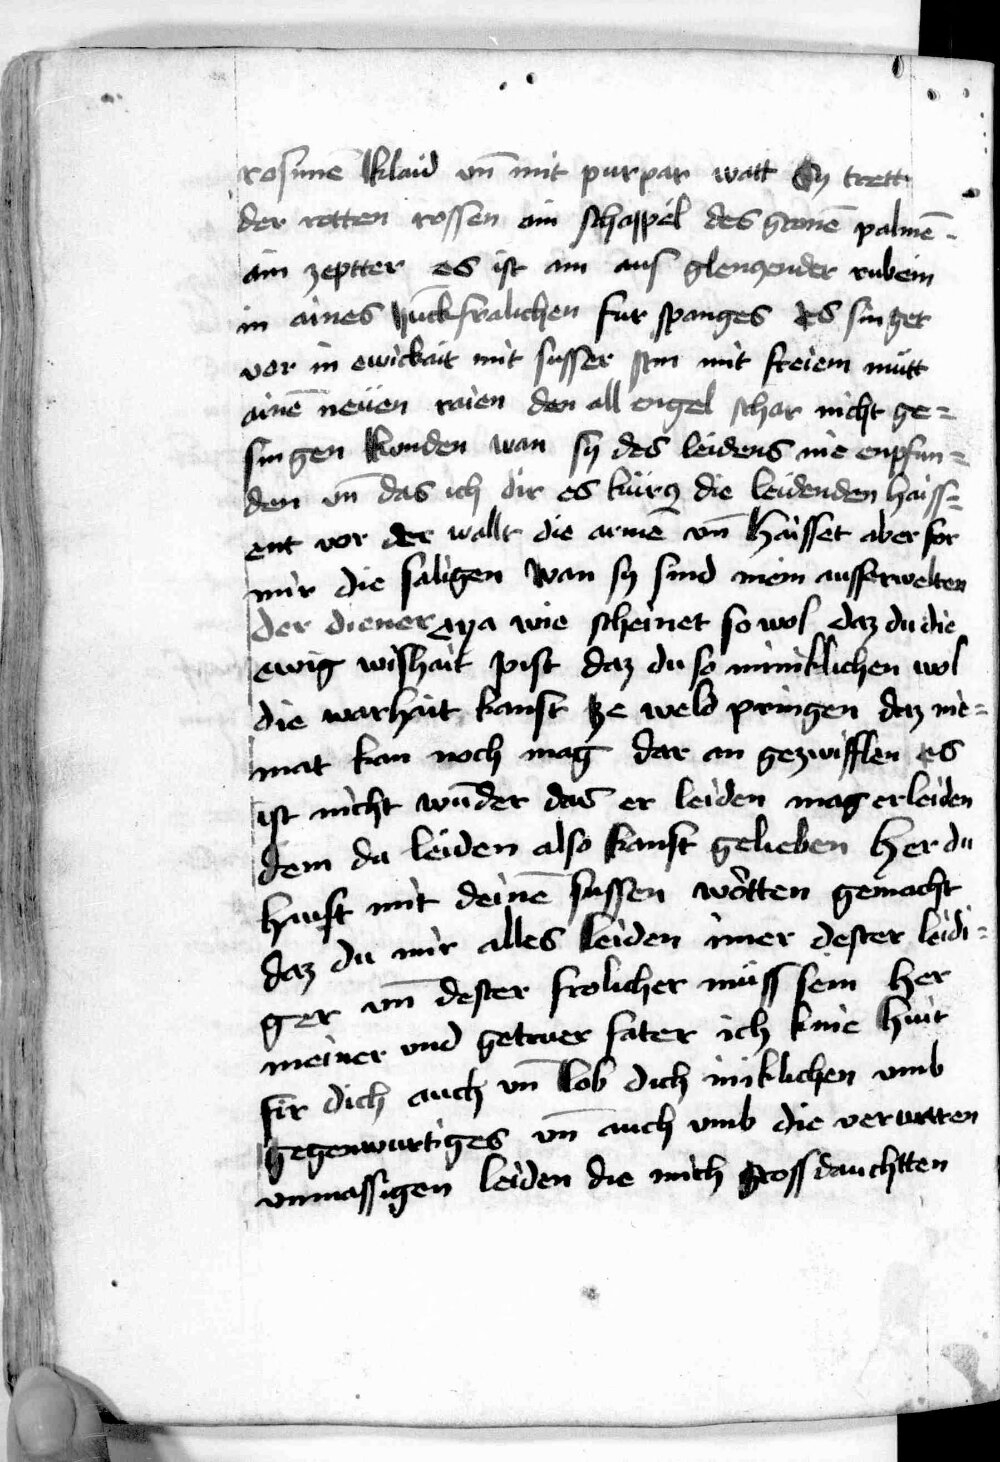 rosinnē klaid vn̄ mit purpar watt Sy trett
der rotten rossen ain schappel des gronē palmē
ain zeptter es ist ain aus glenczender rubein
in aines iūckfralichen fur spanges es singet
vor in ewickait mit susser stm mit freiem mutt
ainē neüen raien den all engel schar nicht ge=
singen konden wan sy des leidens nie enpfun=
den vn̄ das ich dir es kürcz die leidenden haiss=
ent vor der wallt die armē vn̄ haisset aber for
mir die saligen wan sy sind mein ausserwelten
der diener eya wie scheinet so wol daz du die
ewig wishait pist daz du so miniklichen wol
die warhait kanst ze weld pringen daz nie=
mat kan noch mag dar an gezwifflen es
ist nicht wūder das er leiden mag erleiden
dem du leiden also kanst gelieben Her du
haust mit deinē sussen wortten gemacht
daz du mir alles leiden imer dester leidi=
ger vn̄ dester frolicher müss sein her
meiner vnd getruer fater ich knie hüit
fir dich auch vn̄ lob dich iniklichen vmb
gegenwurtiges vn̄ auch vmb die
vnmassigen leiden die mich gross dauchtten